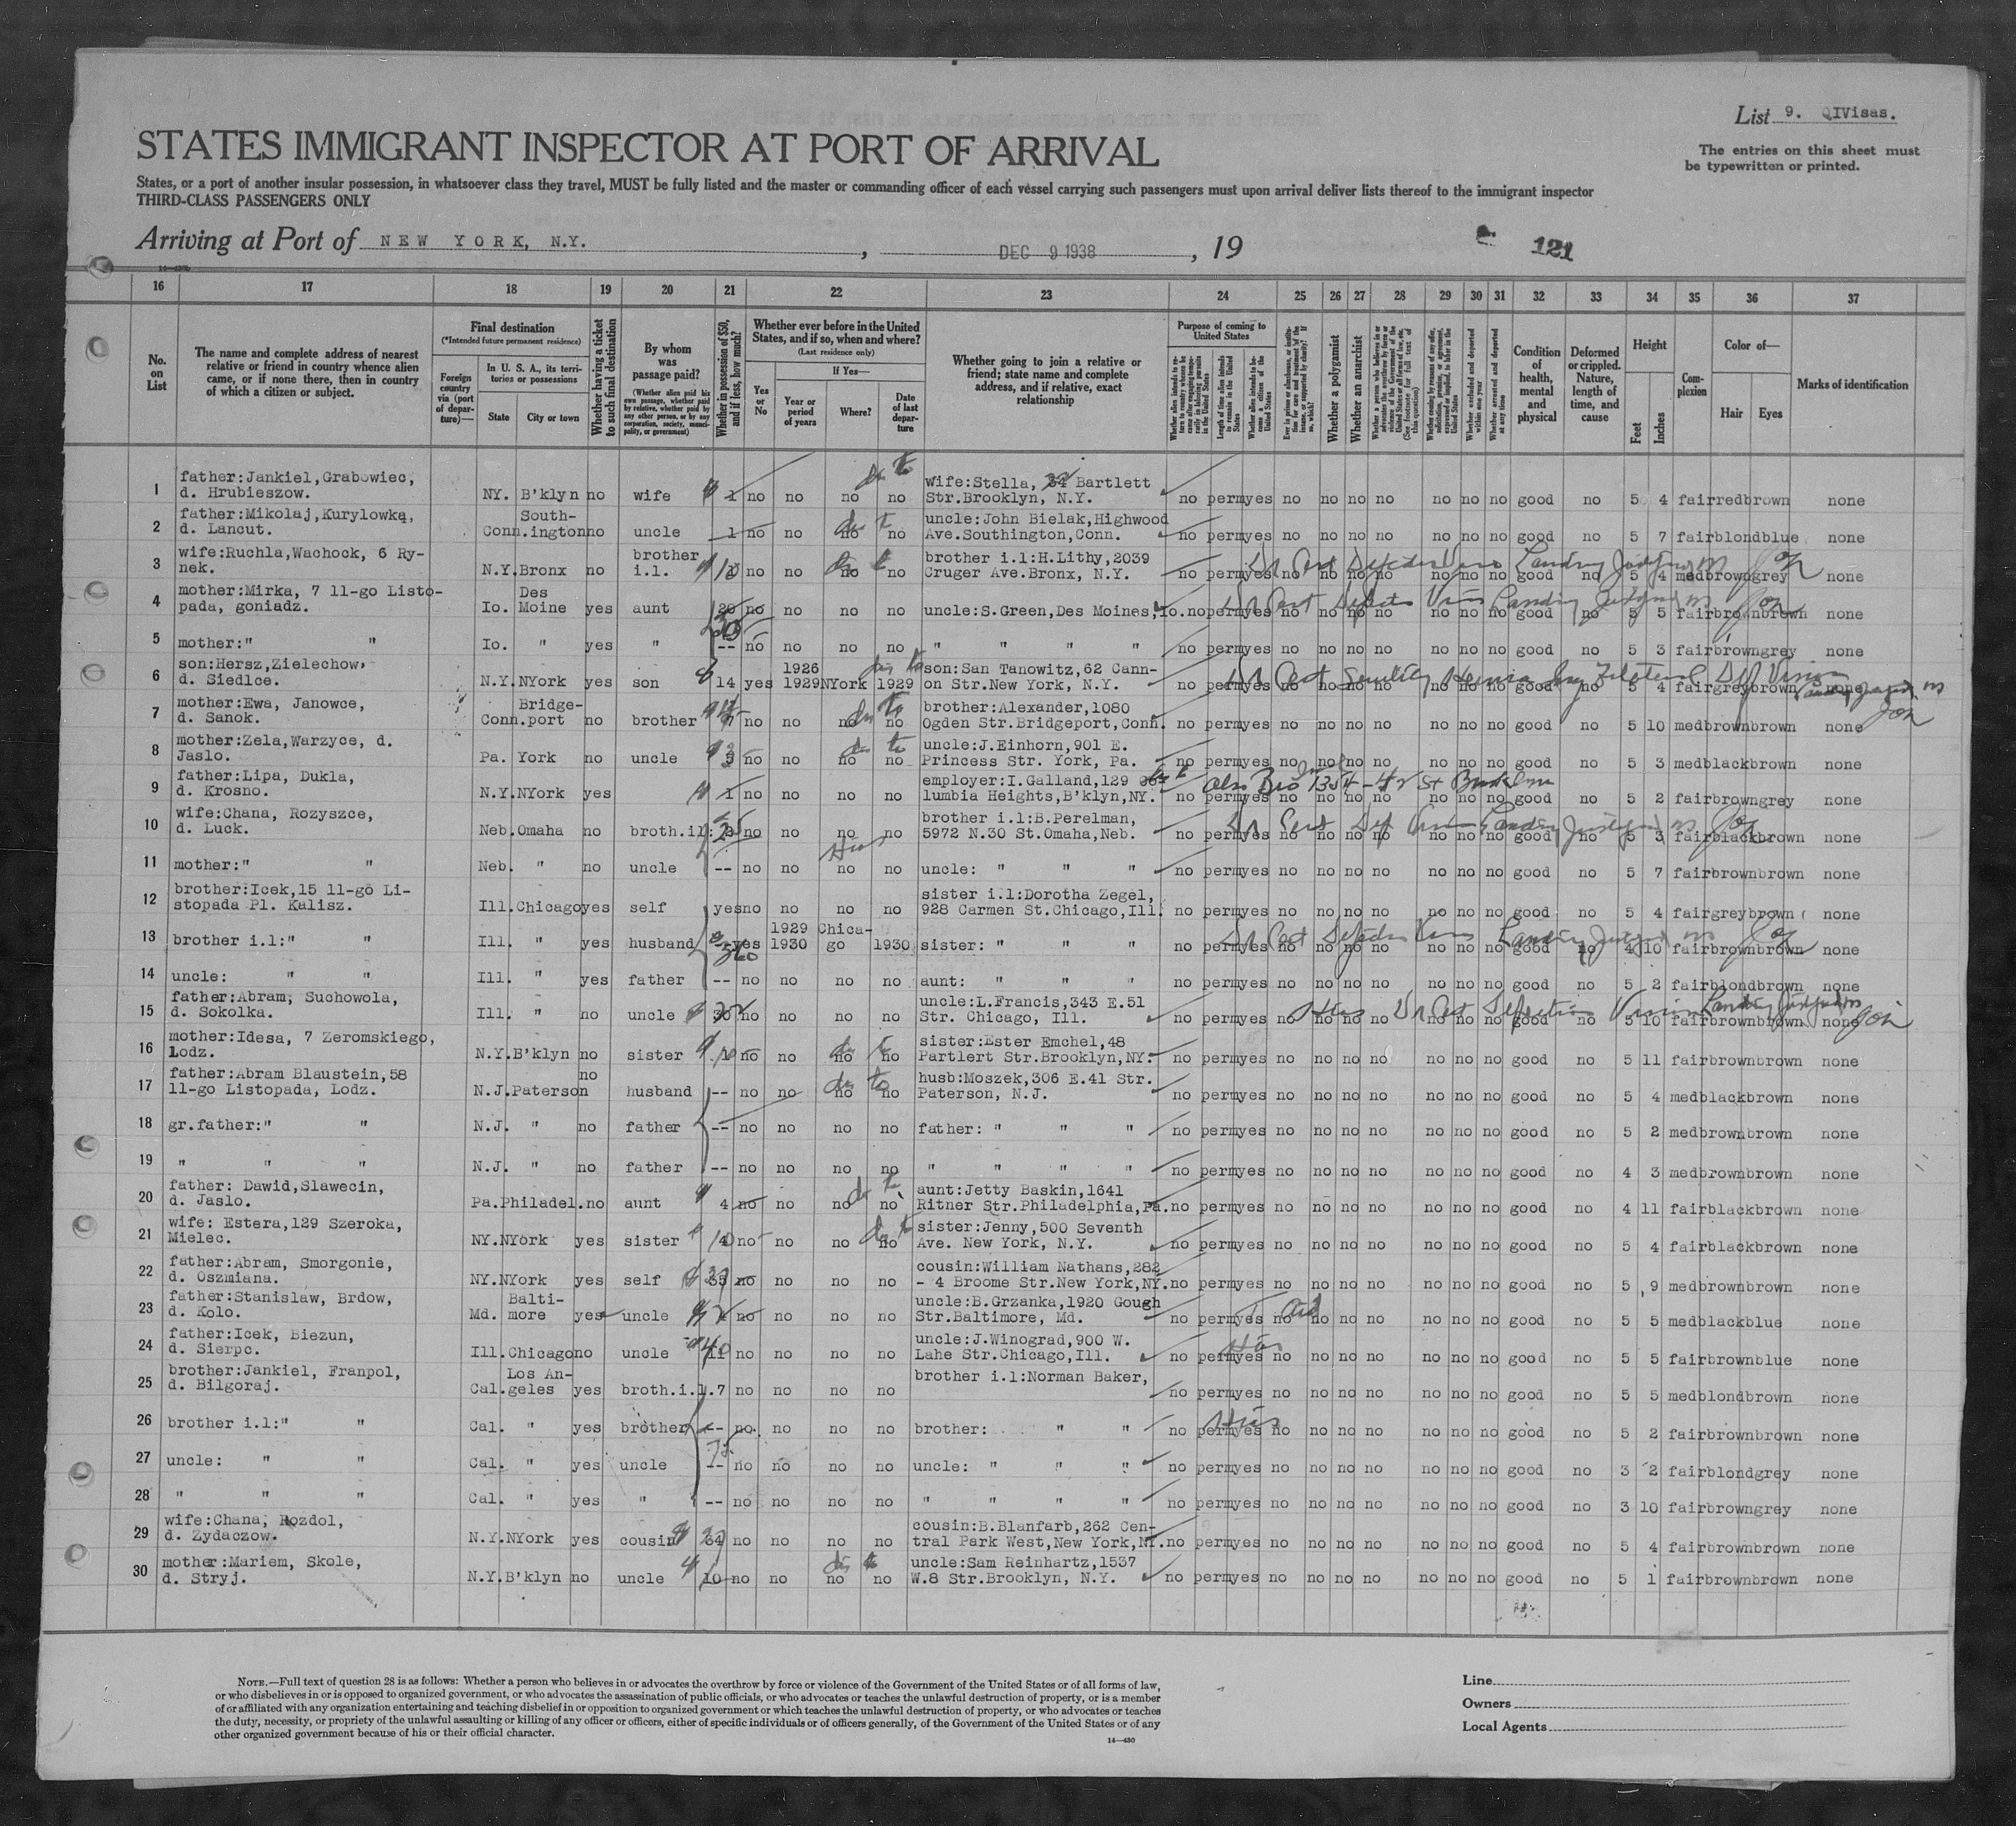 List 9. QIVisas.
STATES IMMIGRANT INSPECTOR AT PORT OF ARRIVAL
The entries on this sheet must
be typewritten or printed.
States, or a port of another insular possession, in whatsoever class they travel, MUST be fully listed and the master or commanding officer of each vessel carrying such passengers must upon arrival deliver lists thereof to the immigrant inspector
THIRD-CLASS PASSENGERS ONLY
Arriving at Port of NEW YORK, N.Y. , DEC 9 1938 , 19 121
16 17 18 19 20 21 22 23 24 25 26 27 28 29 30 31 32 33 34 35 36 37
No. on List
The name and complete address of nearest relative or friend in country whence alien came, or if none there, then in country of which a citizen or subject.
Final destination
(*Intended future permanent residence)
Foreign country via (port of departure)—
In U. S. A., its territories or possessions
State City or town
Whether having a ticket to such final destination
By whom was passage paid?
(Whether alien paid his own passage, whether paid by relative, whether paid by any other person, or by any corporation, society, municipality, or government)
Whether in possession of $50, and if less, how much?
Whether ever before in the United States, and if so, when and where?
(Last residence only)
Yes or No
If Yes—
Year or period of years Where? Date of last departure
Whether going to join a relative or friend; state name and complete address, and if relative, exact relationship
Purpose of coming to United States
Whether a polygamist
Whether an anarchist
Condition of health, mental and physical
Deformed or crippled. Nature, length of time, and cause
Height
Feet Inches
Complexion
Color of—
Hair Eyes
Marks of identification
1 father:Jankiel,Grabowiec, d. Hrubieszow. NY. B'klyn no wife 1 no no no no wife:Stella, 34 Bartlett Str.Brooklyn, N.Y. no perm yes no no no no no no no good no 5 4 fair red brown none
2 father:Mikolaj,Kurylowką, d. Lancut. Conn. South-ington no uncle 1 no no no no uncle:John Bielak,Highwood Ave.Southington,Conn. no perm yes no no no no no no no good no 5 7 fair blond blue none
3 wife:Ruchla,Wachock, 6 Ry-nek. N.Y. Bronx no brother i.l. no no no no brother i.l:H.Lithy,2039 Cruger Ave.Bronx, N.Y. no perm yes no no no no no no no good no 5 4 med brown grey none
4 mother:Mirka, 7 11-go Listo-pada, goniadz. Io. Des Moine yes aunt 20 no no no no uncle:S.Green,Des Moines,Io. no perm yes no no no no no no no good no 5 5 fair brown brown none
5 mother:" " Io. " yes " -- no no no no " " " " no perm yes no no no no no no no good no 5 3 fair brown grey none
6 son:Hersz,Zielechow, d. Siedlce. N.Y. NYork yes son 14 yes 1926 1929 NYork 1929 son:San Tanowitz,62 Cann-on Str.New York, N.Y. no perm yes no no no no no no no good no 5 4 fair grey brown none
7 mother:Ewa, Janowce, d. Sanok. Conn. Bridge-port no brother no no no no brother:Alexander,1080 Ogden Str.Bridgeport,Conn. no perm yes no no no no no no no good no 5 10 med brown brown none
8 mother:Zela,Warzyce, d. Jaslo. Pa. York no uncle no no no no uncle:J.Einhorn,901 E. Princess Str. York, Pa. no perm yes no no no no no no no good no 5 3 med black brown none
9 father:Lipa, Dukla, d. Krosno. N.Y. NYork yes 1 no no no no employer:I.Galland,129 Co-lumbia Heights,B'klyn,NY. no perm yes no no no no no no no good no 5 2 fair brown grey none
10 wife:Chana, Rozyszce, d. Luck. Neb. Omaha no broth.il: no no no no brother i.l:B.Perelman, 5972 N.30 St.Omaha,Neb. no perm yes no no no no no no no good no 5 3 fair black brown none
11 mother:" " Neb. " no uncle -- no no no no uncle: " " " no perm yes no no no no no no no good no 5 7 fair brown brown none
12 brother:Icek,15 11-go Li-stopada Pl. Kalisz. Ill. Chicago yes self yes no no no no sister i.l:Dorotha Zegel, 928 Carmen St.Chicago,Ill. no perm yes no no no no no no no good no 5 4 fair grey brown none
13 brother i.l:" " Ill. " yes husband yes 1929 1930 Chica-go 1930 sister: " " " no perm yes no no no no no no no good no 4 10 fair brown brown none
14 uncle: " " Ill. " yes father -- no no no no aunt: " " " no perm yes no no no no no no no good no 5 2 fair blond brown none
15 father:Abram, Suchowola, d. Sokolka. Ill. " no uncle no no no no uncle:L.Francis,343 E.51 Str. Chicago, Ill. no perm yes no no no no no no no good no 5 10 fair brown brown none
16 mother:Idesa, 7 Zeromskiego, Lodz. N.Y. B'klyn no sister no no no no sister:Ester Emchel,48 Partlert Str.Brooklyn,NY. no perm yes no no no no no no no good no 5 11 fair brown brown none
17 father:Abram Blaustein,58 11-go Listopada, Lodz. N.J. Paterson no husband -- no no no no husb:Moszek,306 E.41 Str. Paterson, N.J. no perm yes no no no no no no no good no 5 4 med black brown none
18 gr.father:" " N.J. " no father -- no no no no father: " " " no perm yes no no no no no no no good no 5 2 med brown brown none
19 " " " N.J. " no father -- no no no no " " " " no perm yes no no no no no no no good no 4 3 med brown brown none
20 father: Dawid,Slawecin, d. Jaslo. Pa. Philadel. no aunt 4 no no no no aunt:Jetty Baskin,1641 Ritner Str.Philadelphia,Pa. no perm yes no no no no no no no good no 4 11 fair black brown none
21 wife: Estera,129 Szeroka, Mielec. NY. NYork yes sister no no no no sister:Jenny,500 Seventh Ave. New York, N.Y. no perm yes no no no no no no no good no 5 4 fair black brown none
22 father:Abram, Smorgonie, d. Oszmiana. NY. NYork yes self no no no no cousin:William Nathans,282 - 4 Broome Str.New York,NY. no perm yes no no no no no no no good no 5 9 med brown brown none
23 father:Stanislaw, Brdow, d. Kolo. Md. Balti-more yes uncle no no no no uncle:B.Grzanka,1920 Gough Str.Baltimore, Md. no perm yes no no no no no no no good no 5 5 med black blue none
24 father:Icek, Biezun, d. Sierpc. Ill. Chicago no uncle 11 no no no no uncle:J.Winograd,900 W. Lahe Str.Chicago,Ill. no perm yes no no no no no no no good no 5 5 fair brown blue none
25 brother:Jankiel, Franpol, d. Bilgoraj. Cal. Los An-geles yes broth.i.l. 7 no no no no brother i.l:Norman Baker, no perm yes no no no no no no no good no 5 5 med blond brown none
26 brother i.l:" " Cal. " yes brother -- no no no no brother: " " no perm yes no no no no no no no good no 5 2 fair brown brown none
27 uncle: " " Cal. " yes uncle -- no no no no uncle: " " " no perm yes no no no no no no no good no 3 2 fair blond grey none
28 " " " Cal. " yes " -- no no no no " " " " no perm yes no no no no no no no good no 3 10 fair brown grey none
29 wife:Chana, Rozdol, d. Zydaczow. N.Y. NYork yes cousin no no no no cousin:B.Blanfarb,262 Cen-tral Park West,New York,NY. no perm yes no no no no no no no good no 5 4 fair brown brown none
30 mother:Mariem, Skole, d. Stryj. N.Y. B'klyn no uncle 10 no no no no uncle:Sam Reinhartz,1537 W.8 Str.Brooklyn, N.Y. no perm yes no no no no no no no good no 5 1 fair brown brown none
NOTE.—Full text of question 28 is as follows: Whether a person who believes in or advocates the overthrow by force or violence of the Government of the United States or of all forms of law,
or who disbelieves in or is opposed to organized government, or who advocates the assassination of public officials, or who advocates or teaches the unlawful destruction of property, or is a member
of or affiliated with any organization entertaining and teaching disbelief in or opposition to organized government or which teaches the unlawful destruction of property, or who advocates or teaches
the duty, necessity, or propriety of the unlawful assaulting or killing of any officer or officers, either of specific individuals or of officers generally, of the Government of the United States or of any
other organized government because of his or their official character.
14—430
Line
Owners
Local Agents